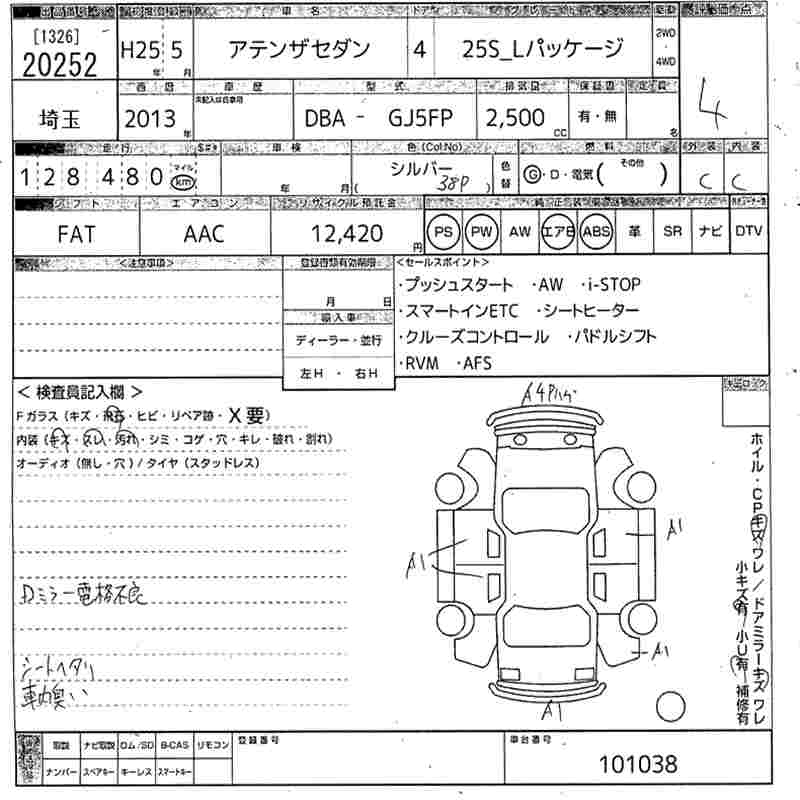 車名 ドア
[1326]
20252 H25年 5月 アテンザセダン 4 25S_Lパッケージ 2WD・4WD 4
型式 排気量
埼玉 2013年 DBA - GJ5FP 2,500CC 有・無 名
走行 車検 色(Col.No) 燃料 外装 内装
128,480 マイル km 年 月 シルバー 38P 色替 G・D・電気( その他 ) C C
シフト エアコン リサイクル預託金
FAT AAC 12,420円 PS PW AW エアB ABS 革 SR ナビ DTV
<注意事項> 登録書類有効期限 <セールスポイント>
月 日
・プッシュスタート ・AW ・i-STOP
・スマートインETC ・シートヒーター
輸入車
ディーラー・並行
・クルーズコントロール ・パドルシフト
左H ・ 右H
・RVM ・AFS
< 検査員記入欄 >
Fガラス(キズ・飛石・ヒビ・リペア跡・X要)
内装(キズ・スレ・汚れ・シミ・コゲ・穴・キレ・破れ・割れ)
オーディオ(無し・穴)/タイヤ(スタッドレス)
Dミラー電格不良
シートヘタリ
車内臭い
A4Pハゲ
A1
A1
A1
A1
ホイル・CPキズワレ/ドアミラーキズワレ
小キズ有/小U有 補修有
取説 ナビ取説 ロム/SD B-CAS リモコン 登録番号 車台番号
ナンバー スペアキー キーレス スマートキー 101038